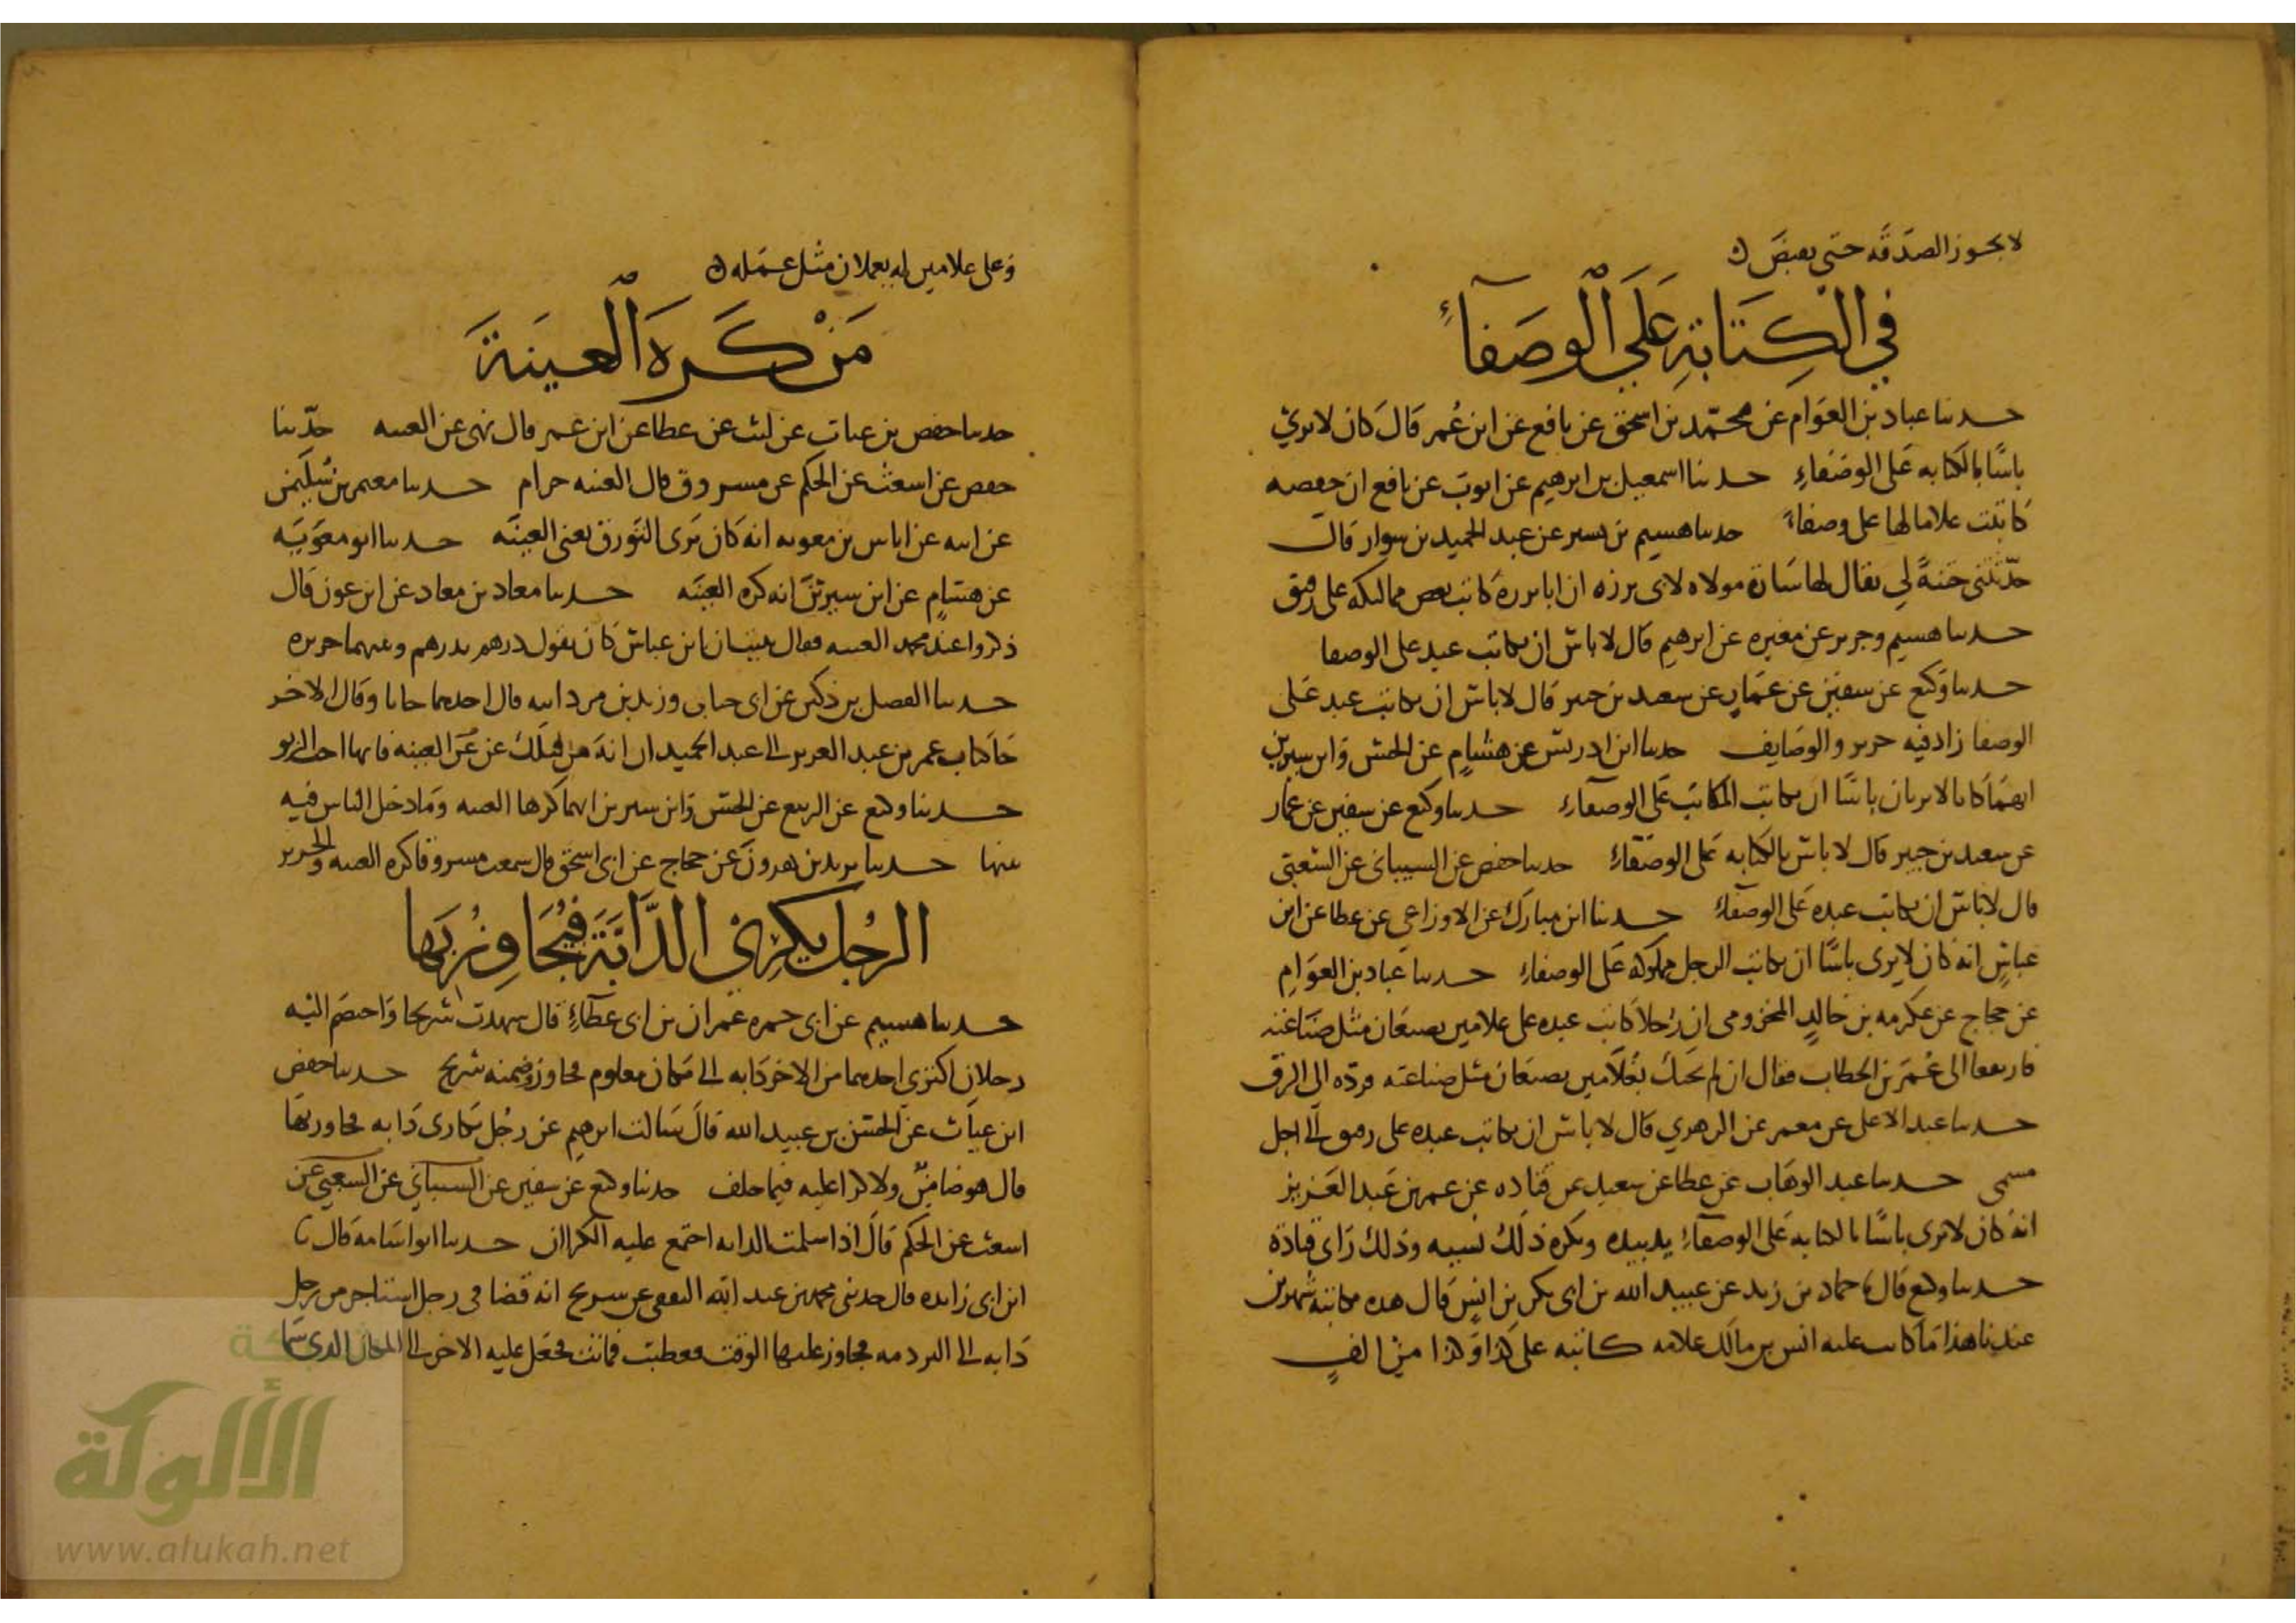 لا يجوز الصدقه حتى يقبض
في الكِتَابَةِ عَلَى الْوصَفآءِ
حدثنا عباد بن العَوَّام عَن محمّد بن اسحق عن نافع عن ابن عُمر قَالَ كان لا يرى
باسًا بالكتابه عَلى الوصَفاءِ حدثنا اسمعيل بن ابرهيم عن ايوب عن نافع ان حفصه
كاتبت غلاما لها على وصفاء حدثنا هشيم بن بشير عن عبد الحميد بن سوار قال
حدّثتني ختنةً لي يقال لها سَارة مولاه لابى برزه ان ابا برزة كاتب بعض مماليكه على رقيق
حدثنا هشيم وجرير عن مغيره عن ابرهيم قال لا باس ان يكاتب عبده على الوصفا
حدثنا وكيع عن سفين عن عمَّار عن سعيد بن جبير قال لا باس ان يكاتب عبده عَلى
الوصفا زاد فيه جرير والوصَايف حدثنا ابن ادريس عن هشام عن الحسن وَابن سيرين
انهمَا كانا لا يريان باسًا ان يكاتب المكاتب عَلى الوصفآءِ حدثنا وكيع عن سفين عن عمار
عن سعيد بن جبير قال لا باس بالكتابه عَلى الوصَفآءِ حدثنا حفص عن الشيبانى عن الشعبى
قال لا باس ان يكاتب عبده عَلى الوصفآءِ حدثنا ابن مبارك عن الاوزاعي عن عطا عن ابن
عباسٍ انه كان لا يرى باسًا ان يكاتب الرجل مملوكه عَلى الوصفاءِ حدثنا عباد بن العوَامِ
عن حجاج عن عكرمه بن خالدٍ المخزومى ان رَجلاً كاتب عبده على غلامين يصنعَان مثل صنَاعته
فارتفعا الى عُمَر بن الخطاب فقال ان لم يجئك بغُلاَمين يصنعَان مثل صناعته فردّه الى الرق
حدثنا عبد الاعلى عن معمر عن الزهري قال لا باس ان يكاتب عبده على رقيق الى اجل
مسمى حدثنا عبد الوهَاب عن عطا عن سعيد عن قتاده عن عمر بن عَبد العَزيز
انه كان لا يرى باسًا بالكتابه عَلى الوصفآءِ يد بيده وَيكره ذلكَ نسيه وذلك رَاى قتادة
حدثنا وكيع قال حماد بن زيد عن عبيد الله بن ابى بكر بن انس قَال هذه مكاتبة سيرين
عندنا هذا مَا كاتب عليه انس بن مالك غلامه كاتبه على كذا وَكذا من الفٍ
وَعلى غلامين له يعملان مثل عمَله
مَنْ كَرِهَ الْعِينَةَ
حدثنا حفص بن غياث عن ليث عن عطا عن ابن عمر قال نهى عن العينه حدّثنا
حفص عن اشعث عن الحكم عن مسروق قال العينه حرام حدثنا معمر بن سُليمن
عن ابيه عن اياس بن معويه انه كان يَرى التَورق يعنى العِينَه حدثنا ابو معَويَه
عن هشامٍ عن ابن سيرين انه كره العِينَه حدثنا معاذ بن معاذ عن ابن عون قال
ذكروا عند محمد العينه فقال نبيت ان ابن عباس كان يقول درهم بدرهم وبينهما حريره
حدثنا الفضل بن دكين عن ابى جناب ويزيد بن مردانبه قال احدهما جانا وقال الاخر
جَا كتاب عمر بن عبد العزيز الى عبد الحميد ان انه من قبلك عن عَن العينه فانها اخت الربو
حدثنا وكيع عن الربيع عن الحسن وَابن سيرين انهما كرها العينه وَما دخل الناس فيه
منها حدثنا يزيد بن هرونَ عن حجاج عن ابى اسحق قال سمعت مسروقا كره العينه والحرير
الرجُل يَكتري الدَّابَّةَ فيُجَاوِزُ بَها
حدثنا هشيم عن ابى حمره عمران بن ابى عطآءٍ قال شهدت شريحا وَاختصَم اليْه
رجلان اكترى احدهما من الاخر دَابه الى مَكان معلوم فجاوز فضمنه شريح حدثنا حفص
ابن غياث عن الحسَن بن عبيد الله قَال سَالت ابرهيم عن رجُل تكارى دَابه فجاوز بهَا
قال هو ضامنٌ ولا كرا عليه فيما خلف حدثنا وكيع عن سفين عن الشيباني عن الشعبي عن
اشعث عن الحكم قَال اذا سلمت الدابه اجتمع عليه الكراان حدثنا ابو اسَامه قَال
ابن ابى زائده قال حدثنى محمد بن عبد الله الثقفى عن شريح انه قضا فى رجل استاجر من رجل
دَابه الى المكان الذى سَما
الألوكة
www.alukah.net